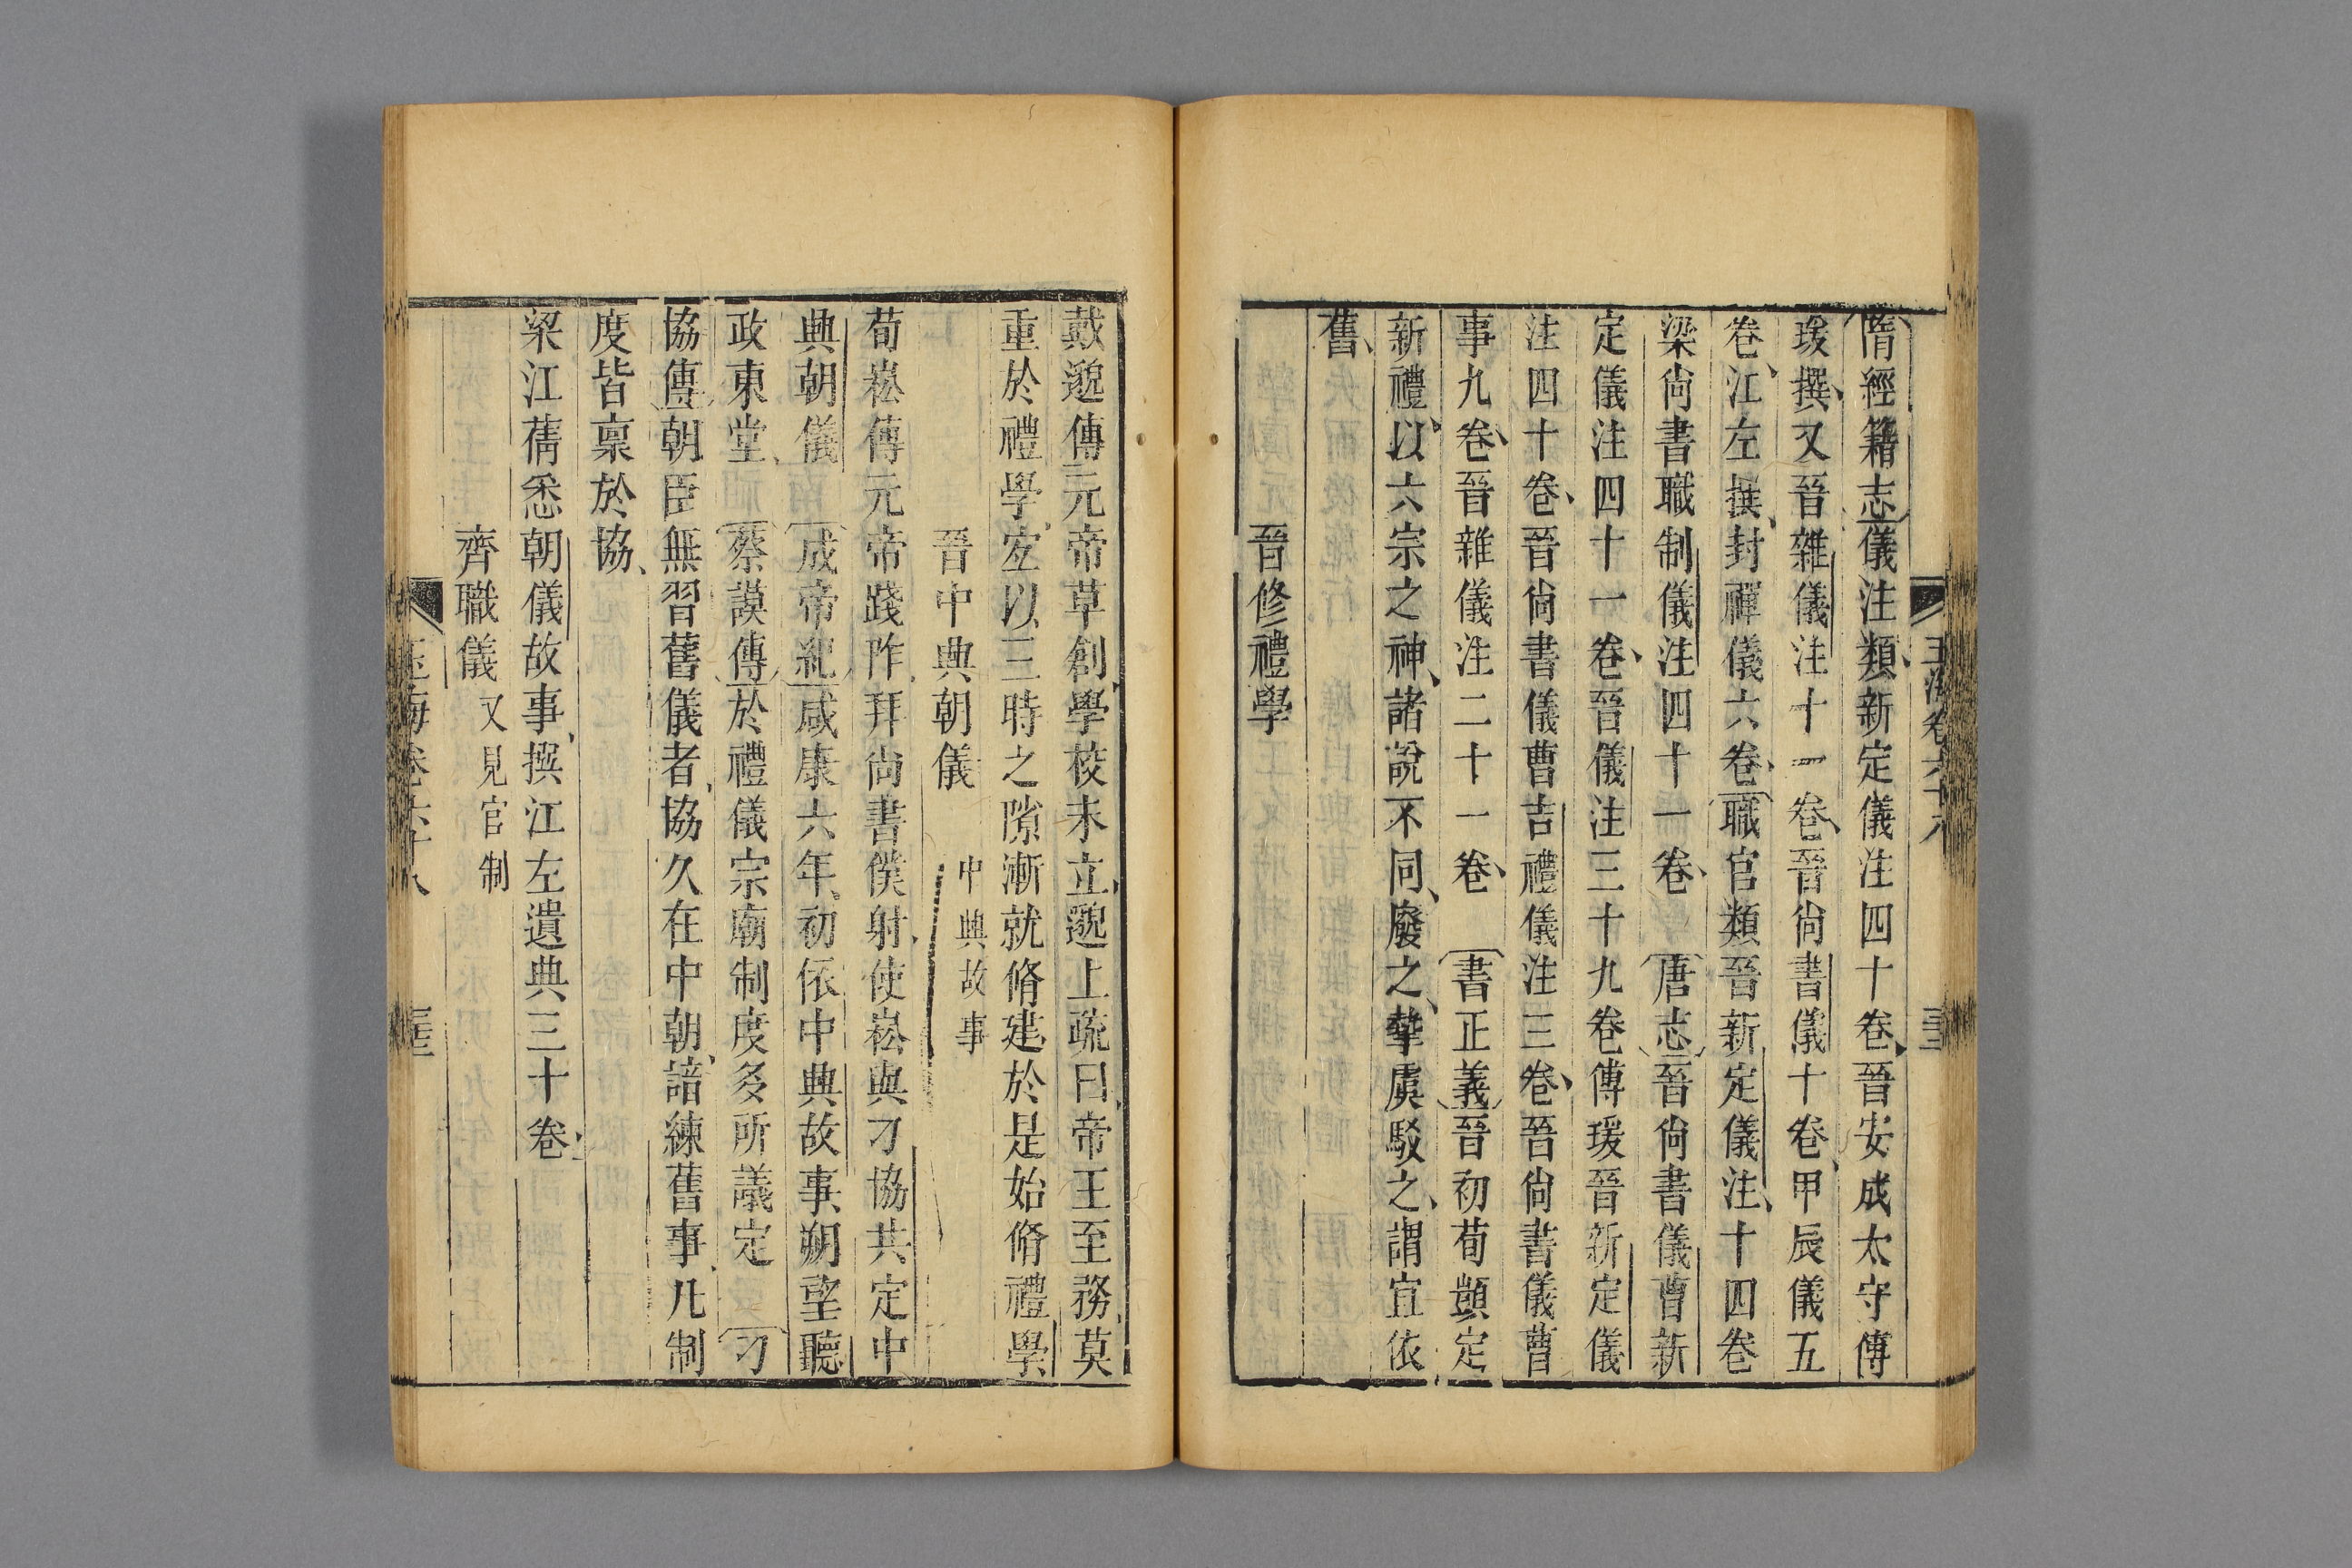 隋經籍志儀注類新定儀注四十卷晉安成太守傅
瑗撰又晉雜儀注十一卷晉尚書儀十卷甲辰儀五
卷江左撰封禪儀六卷職官類晉新定儀注十四卷
梁尚書職制儀注四十一卷 唐志晉尚書儀曹新
定儀注四十一卷晉儀注三十九卷傅瑗晉新定儀
注四十卷晉尚書儀曹吉禮儀注三卷晉尚書儀曹
事九卷晉雜儀注二十一卷 書正義晉初荀顗定
新禮以六宗之神諸說不同廢之摯虞駁之謂宜依
舊
晉修禮學
戴邈傳元帝草創學校未立邈上疏曰帝王至務莫
重於禮學宐以三時之隙漸就脩建於是始脩禮學
晉中興朝儀 中興故事
荀崧傳元帝踐阼拜尚書僕射使崧與刁協共定中
興朝儀 成帝紀咸康六年初依中興故事朔望聽
政東堂 蔡謨傳於禮儀宗廟制度多所議定 刁
協傳朝臣無習舊儀者協久在中朝諳練舊事凡制
度皆稟於協
梁江蒨悉朝儀故事撰江左遺典三十卷
齊職儀 又見官制
玉海卷六十八